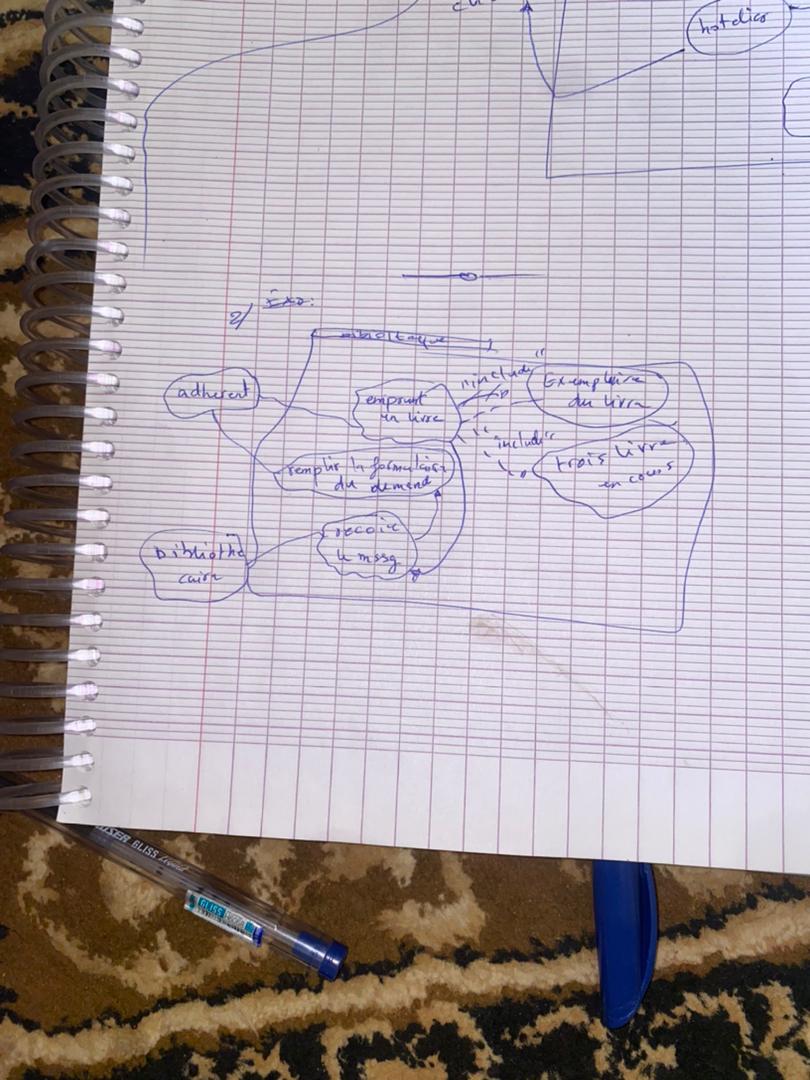 hotelier
2/ Exo:
bibliotheque
adherent
emprunt
un livre
"include"
Exemplaire
du livre
"include"
trois livre
en cours
remplir la formulaire
du demand
recoit
u mssg
bibliothe
caire
GLISS Liquid
GLISS